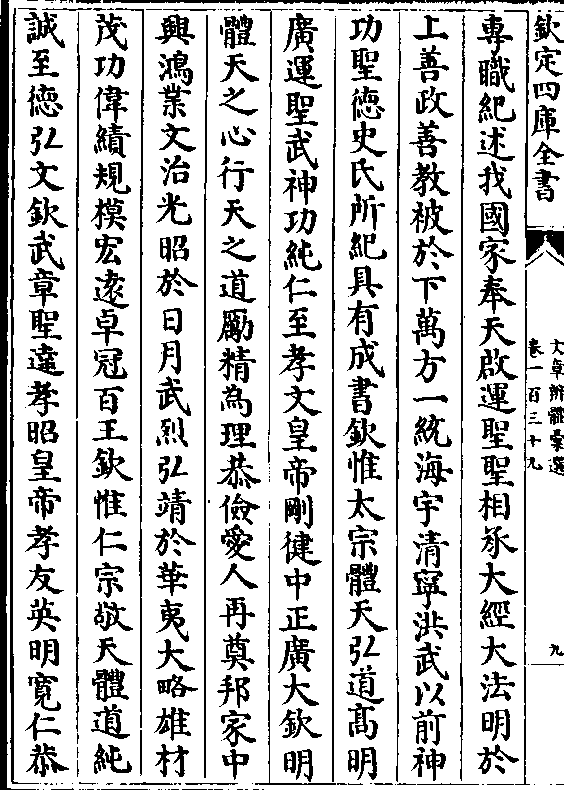 欽定四庫全書
文章辨體彙選
卷一百三十九
九
專職紀述我國家奉天啟運聖聖相承大經大法明於
上善政善教被於下萬方一統海宇清寧洪武以前神
功聖徳史氏所紀具有成書欽惟太宗體天弘道髙明
廣運聖武神功純仁至孝文皇帝剛健中正廣大欽明
體天之心行天之道勵精為理恭儉愛人再奠邦家中
興鴻業文治光昭於日月武烈弘靖於華夷大略雄材
茂功偉績規模宏逺卓冠百王欽惟仁宗敬天體道純
誠至徳弘文欽武章聖達孝昭皇帝孝友英明寛仁恭